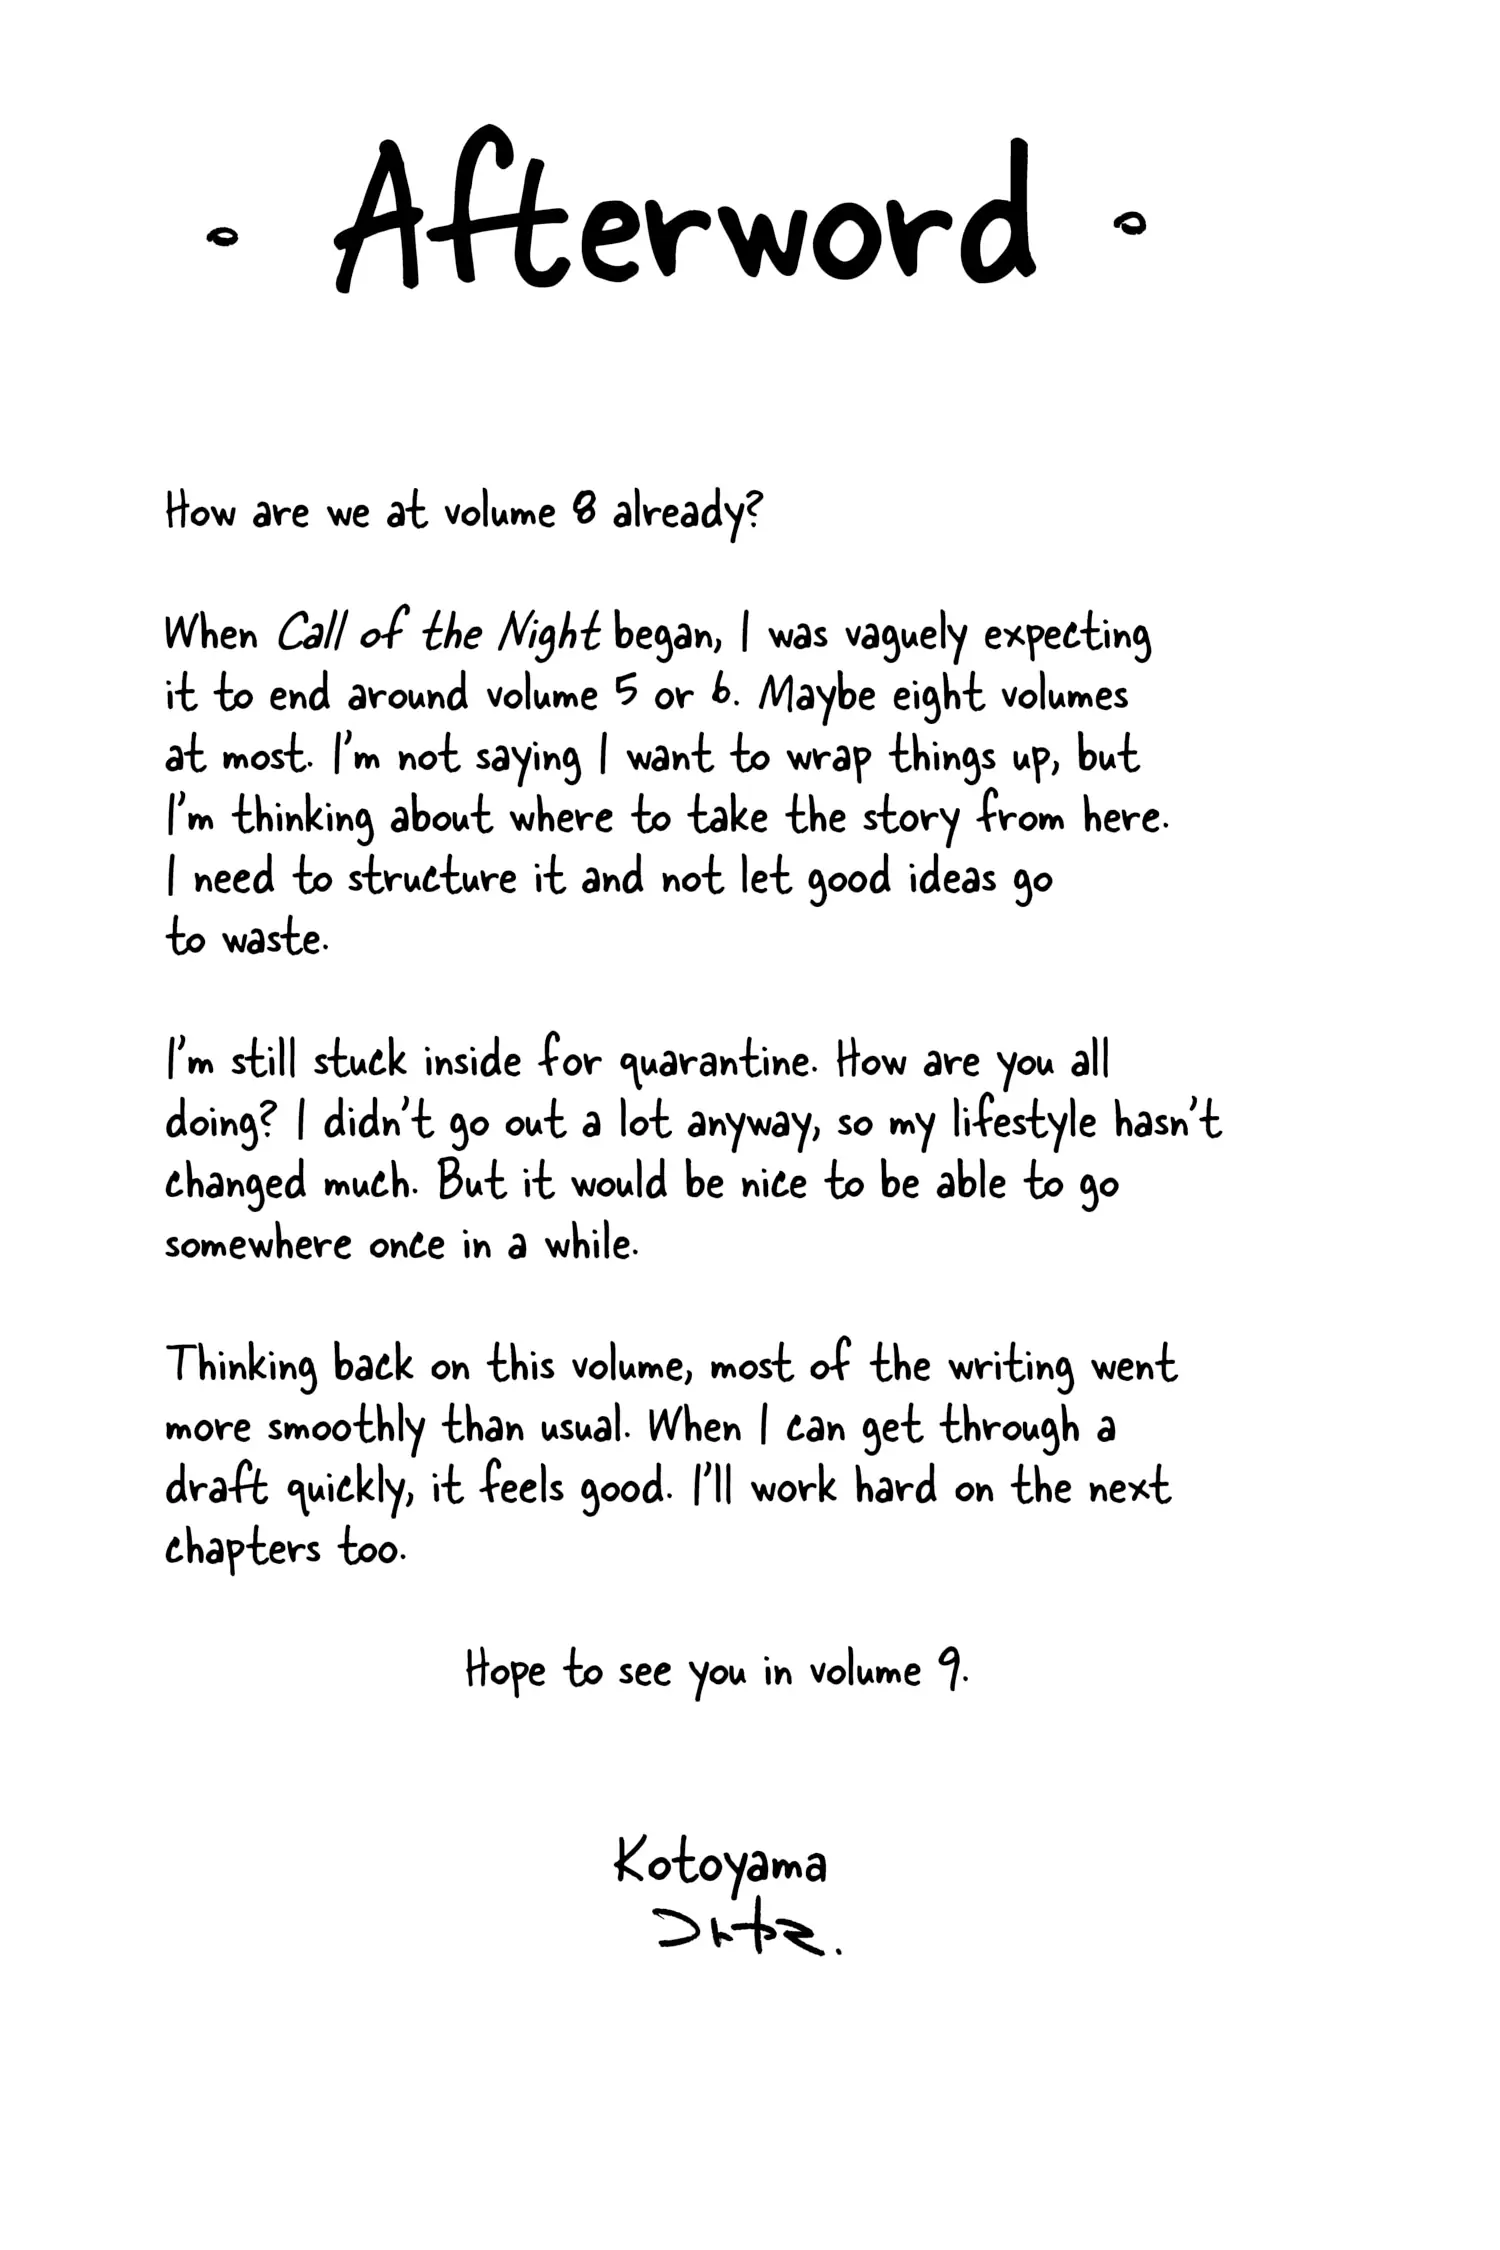 Afterword
How are we at volume 8 already?
When Call of the Night began, I was vaguely expecting
it to end around volume 5 or 6. Maybe eight volumes
at most. I'm not saying I want to wrap things up, but
I'm thinking about where to take the story from here.
I need to structure it and not let good ideas go
to waste.
I'm still stuck inside for quarantine. How are you all
doing? I didn't go out a lot anyway, so my lifestyle hasn't
changed much. But it would be nice to be able to go
somewhere once in a while.
Thinking back on this volume, most of the writing went
more smoothly than usual. When I can get through a
draft quickly, it feels good. I'll work hard on the next
chapters too.
Hope to see you in volume 9.
Kotoyama
コトヤマ.